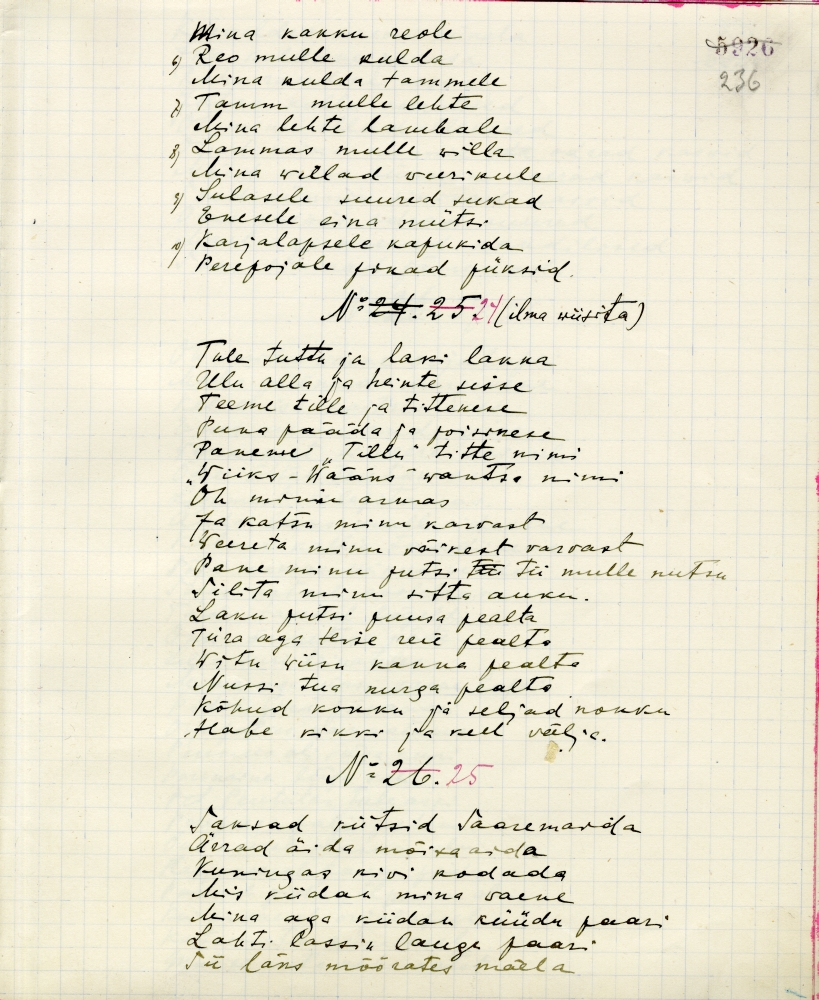 Mina kakku reole
5926
236
6) Reo mulle kulda
Mina kulda tammele
7) Tamm mulle lehte
Mina lehte lambale
8) Lammas mulle willa
Mina willad weerikule
9) Sulasele suured sukad
Enesele eina mütsi
10) Karjalapsele kapukida
Perepojale pikad püksid.
No 24. 25. 24 (ilma wiisita)
Tule tuttu ja laki lakka
Ulu alla ja heinte sisse
Teeme tille ja tittekese
Puna pääda ja poisikese
Paneme „Tillu" titte nimi
„Wiiks-Wääks" wantsa nimi
Oh minu armas
Ja katsu minu karwast
Weereta minu väikest varvast
Pane minu putsi tii mulle nutsu
Silita minu sitta auku.
Laku putsi puusa pealta
Türa aga teise reie pealta
Witu wiisu kanna pealta
Nussi tua nurga pealta
Kõhud kokku ja seljad nokku
Habe kikki ja keel välja.
No 26. 25
Saksad kiitsid Saaremaida
Ärrad äida mõisaaida
Kuningas kivi kodada
Mis kiidan mina vaene
Mina aga kiidan küüdu paari
Lahti lassin laugu paari
Sii läks möörates mäela